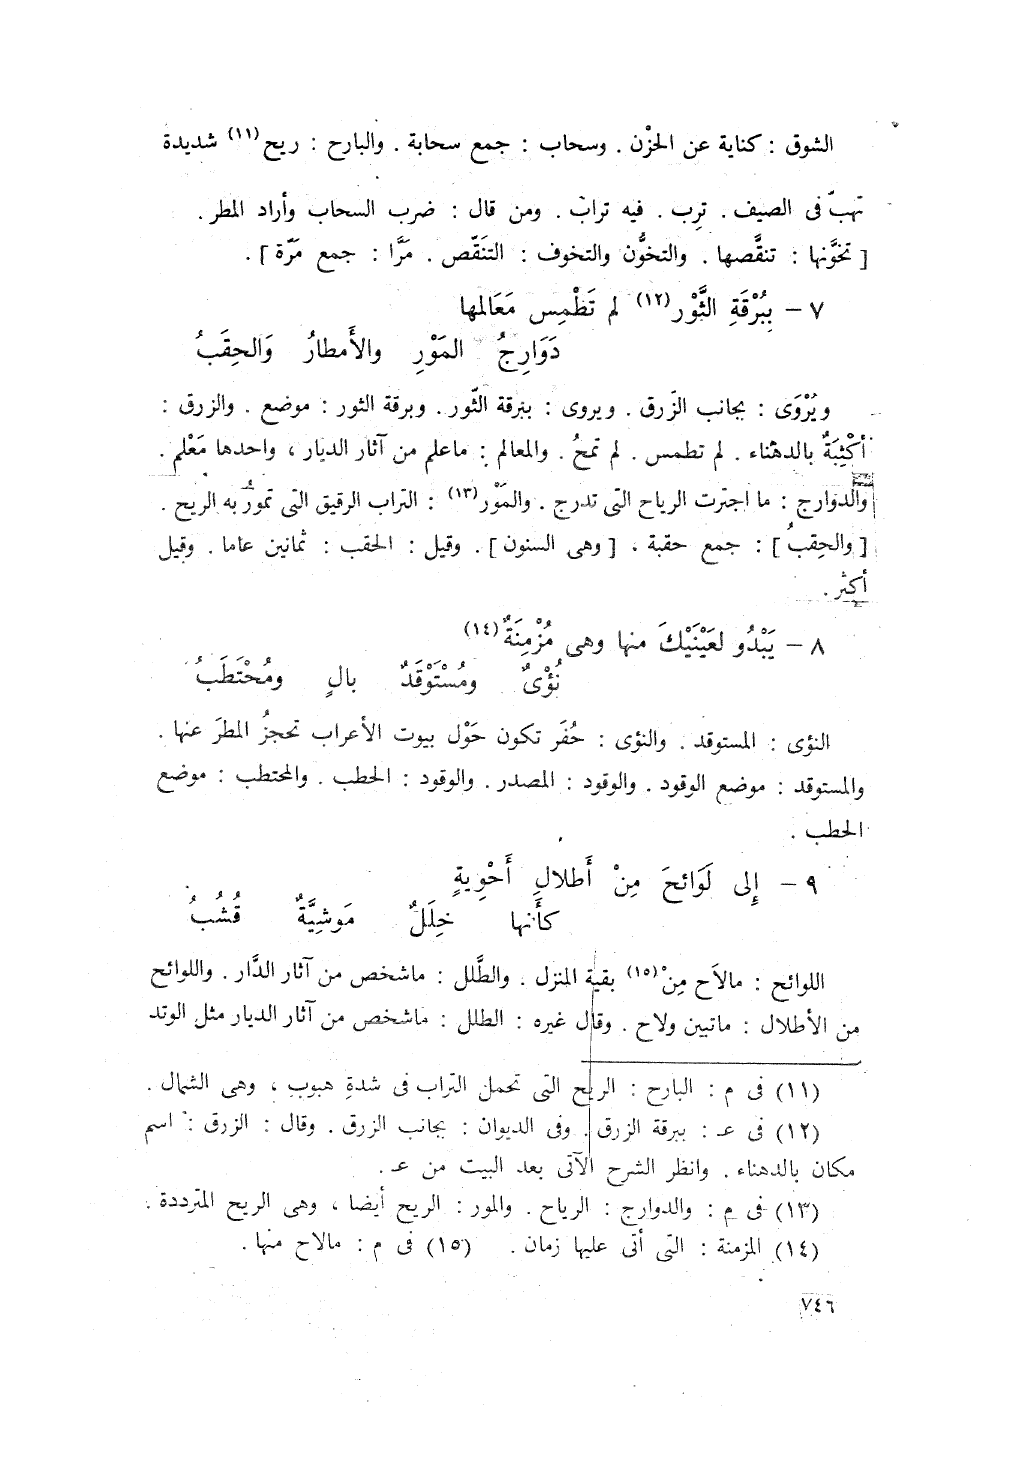 الشوق : كناية عن الحزْن . وسحاب : جمع سحابة . والبارح : ريح (١١) شديدة
تهبّ فى الصيف . ترِب . فيه تراب . ومن قال : ضرب السحاب وأراد المطر .
[ تخوَّنها : تنقَّصها . والتخوُّن والتخوف : التنَقّص . مَرَّا : جمع مَرّة ] .
٧ – بِبُرْقَةِ الثَّوْر (١٢) لم تَطْمِس مَعَالمها
دَوَارِجُ المَوْرِ والأَمطارُ وَالحِقَبُ
ويُرْوَى : بجانب الزَرق . ويروى : ببَرقة الثّور . وبرقة الثور : موضع . والزرق :
أكْثِبَةٌ بالدهناء . لم تطمس . لم تمحُ . والمعالم : ماعلم من آثار الديار ، واحدها مَعْلم .
والدوارج : ما اجترت الرياح التى تدرج . والمَوْر (١٣) : التراب الرقيق التى تمورُ به الريح .
[ والحِقبُ ] : جمع حقبة ، [ وهى السنون ] . وقيل : الحقب : ثمانين عاما . وقيل
أكثر .
٨ – يَبْدُو لعَيْنَيْكَ منها وهى مُزْمِنَةٌ (١٤)
نُؤْىٌ ومُسْتَوْقَدٌ بالٍ ومُحْتَطَبُ
النؤى : المستوقد . والنؤى : حُفَر تكون حَوْل بيوت الأعراب تحجزُ المطرَ عنها .
والمستوقد : موضع الوقود . والوقود : المصدر . والوقود : الحطب . والمحتطب : موضع
الحطب .
٩ – إِلى لَوَائحَ مِنْ أَطلالِ أَحْوِيةٍ
كأَنها خِلَلٌ مَوشِيَّةٌ قُشُبُ
اللوائح : مالاَح مِنْ (١٥) بقية المنزل . والطَّلل : ماشخص من آثار الدَّار . واللوائح
من الأطلال : ماتبين ولاح . وقال غيره : الطلل : ماشخص من آثار الديار مثل الوتد
(١١) فى م : البارح : الريح التى تحمل التراب فى شدةِ هبوب ، وهى الشمال .
(١٢) فى عـ : ببرقة الزرق . وفى الديوان : بجانب الزرق . وقال : الزرق : اسم
مكان بالدهناء . وانظر الشرح الآتى بعد البيت من عـ .
(١٣) فى م : والدوارج : الرياح . والمور : الريح أيضا ، وهى الريح المترددة .
(١٤) المزمنة : التى أتى عليها زمان . (١٥) فى م : مالاح منها .
٧٤٦